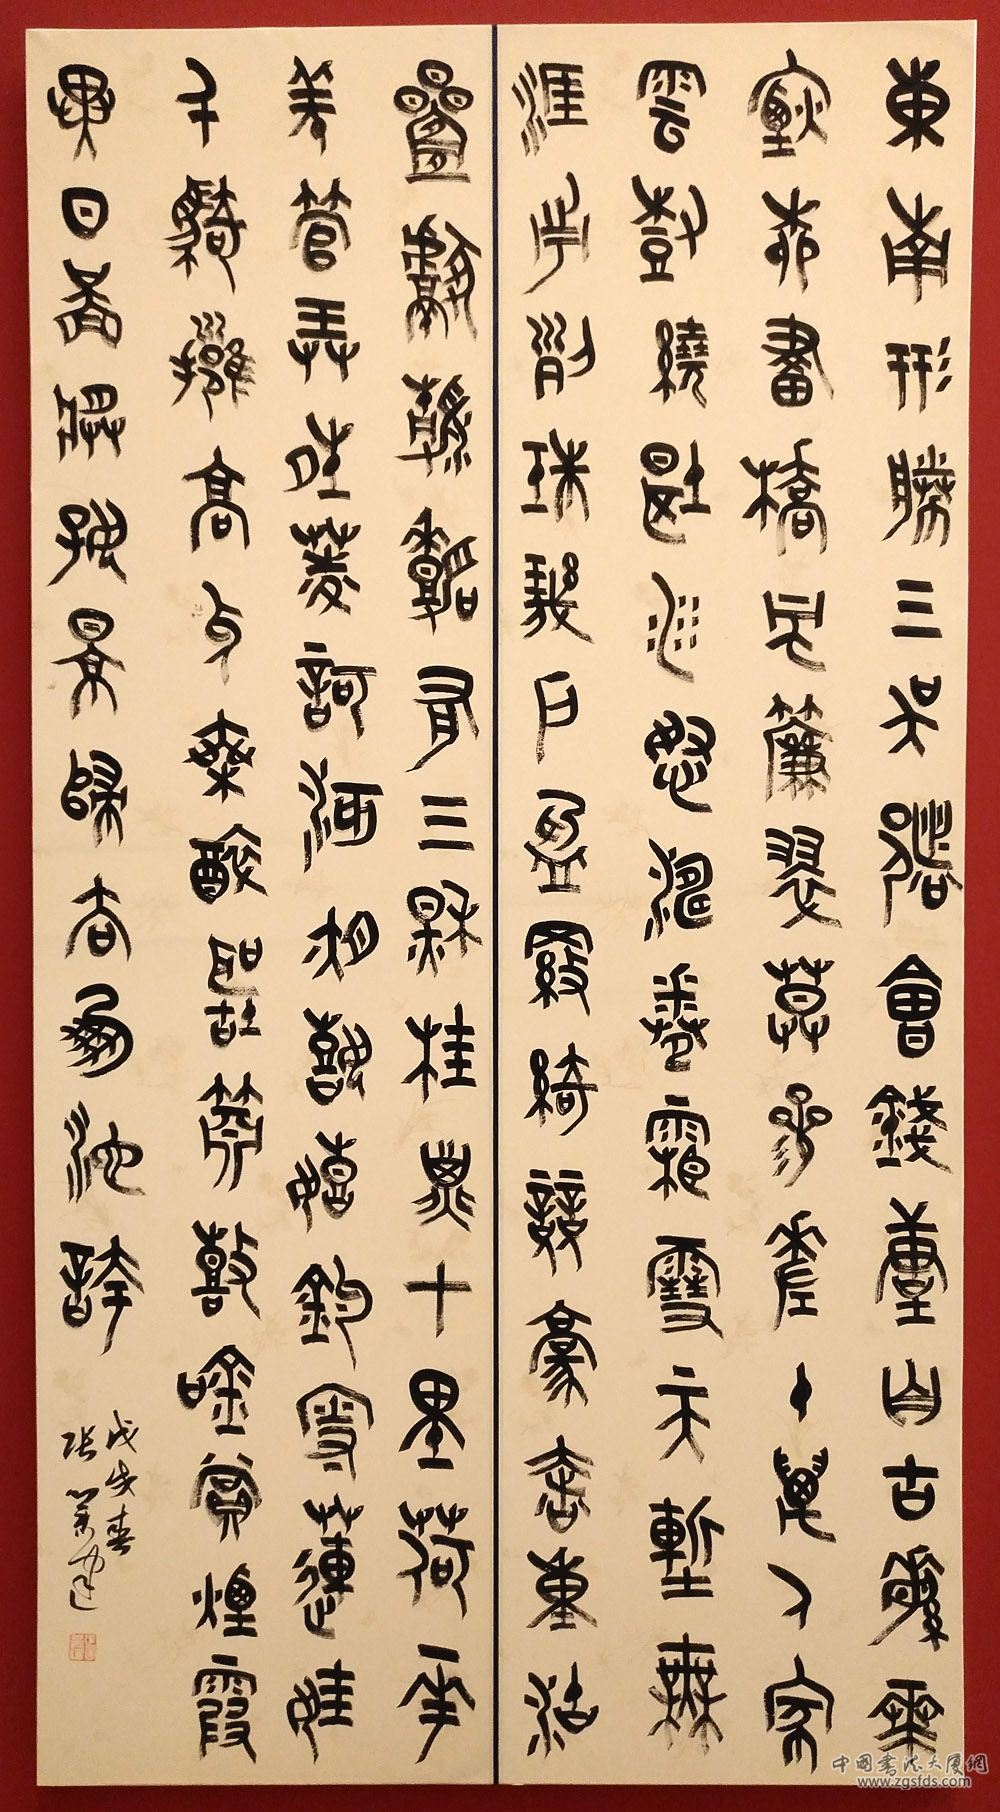 東南形勝三吳都會錢塘自古繁華
煙柳畫橋風簾翠幕參差十萬人家
雲樹繞堤沙怒濤卷霜雪天塹無
涯市列珠璣戶盈羅綺競豪奢重湖
疊巘清嘉有三秋桂子十里荷花
羌管弄晴菱歌泛夜嬉嬉釣叟蓮娃
千騎擁高牙乘醉聽簫鼓吟賞煙霞
異日圖將好景歸去鳳池誇
戊戌春
中國書法大廈網
www.zgsfds.com